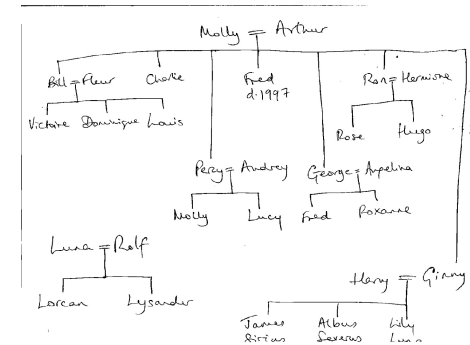 Molly = Arthur
Bill = Fleur Charlie Fred Ron = Hermione
d.1997
Victoire Dominique Louis
Rose Hugo
Percy = Audrey George = Angelina
Molly Lucy Fred Roxanne
Luna = Rolf
Lorcan Lysander
Harry = Ginny
James Albus Lily
Sirius Severus Luna